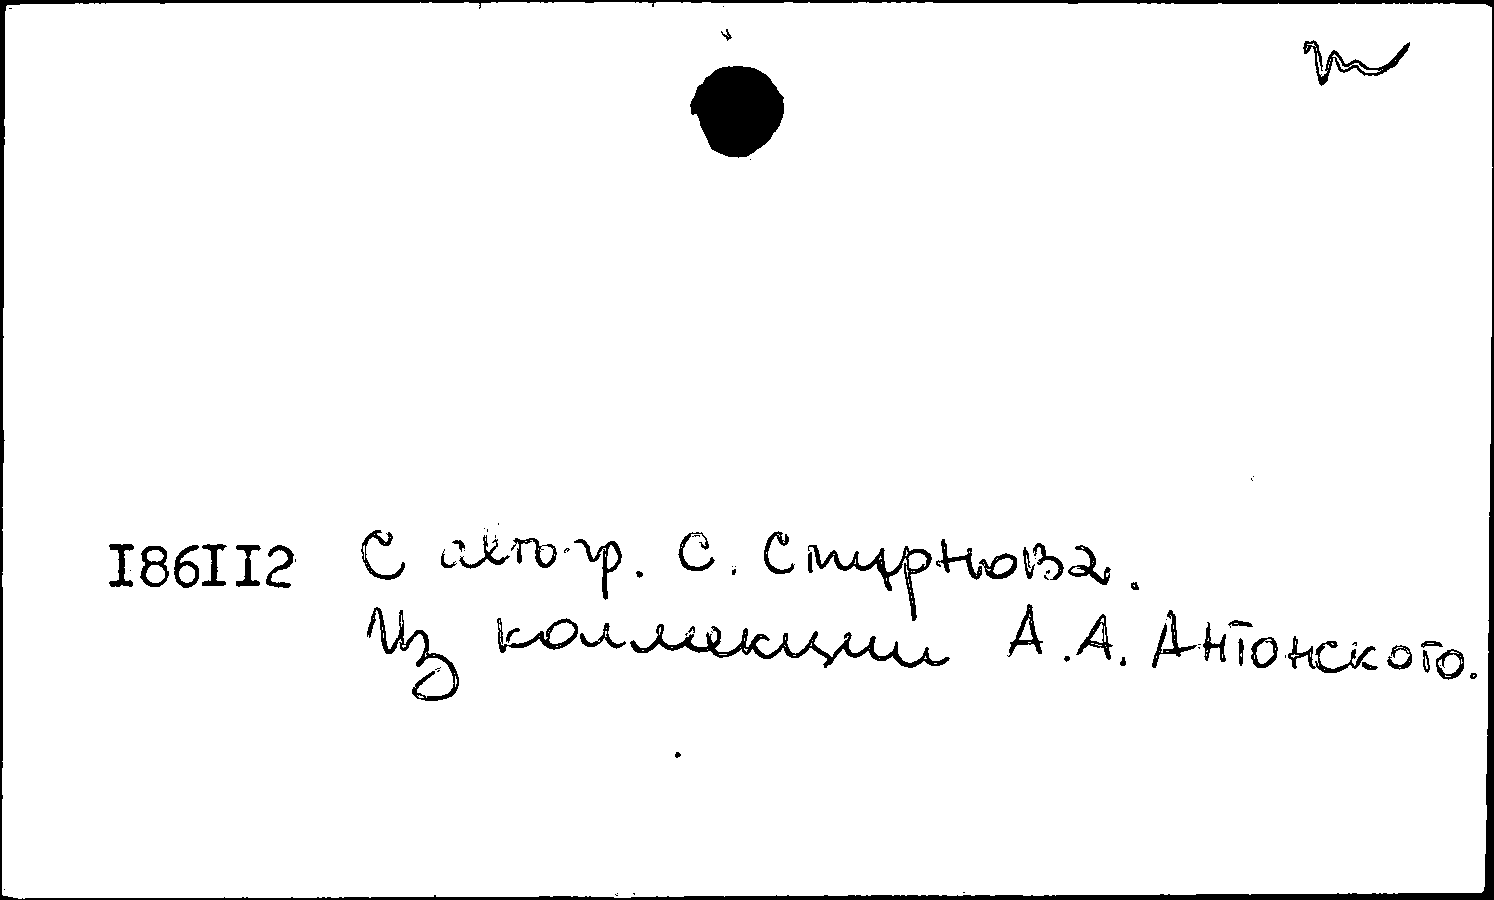 I86II2 С автогр. С. Смирнова.
Из коллекции А.А. Антонского.